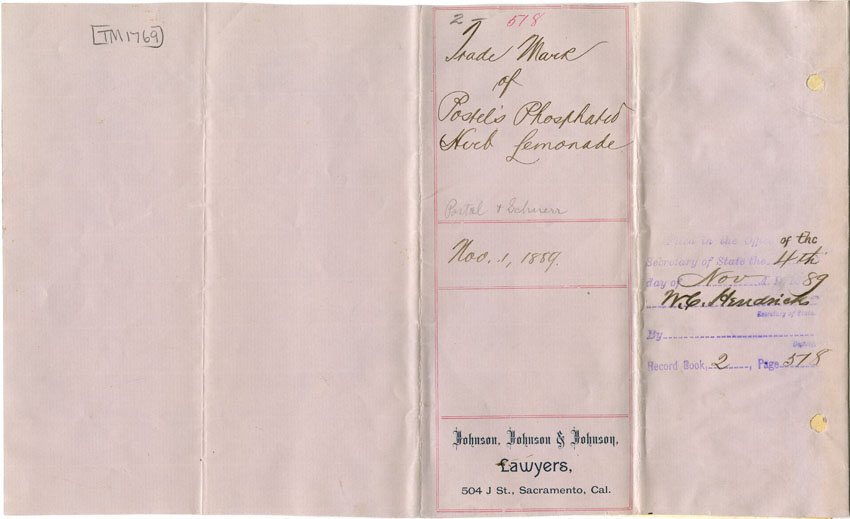 [TM1769]
2 – 518
Trade Mark
of
Postel's Phosphated
Herb Lemonade
Postel & Schnerr
Nov. 1, 1889.
Johnson, Johnson & Johnson,
Lawyers,
504 J St., Sacramento, Cal.
Filed in the Office of the
Secretary of State the 4th
day of Nov A. D. 1889
W. C. Hendricks
Secretary of State.
By
Deputy.
Record Book, 2, Page 518